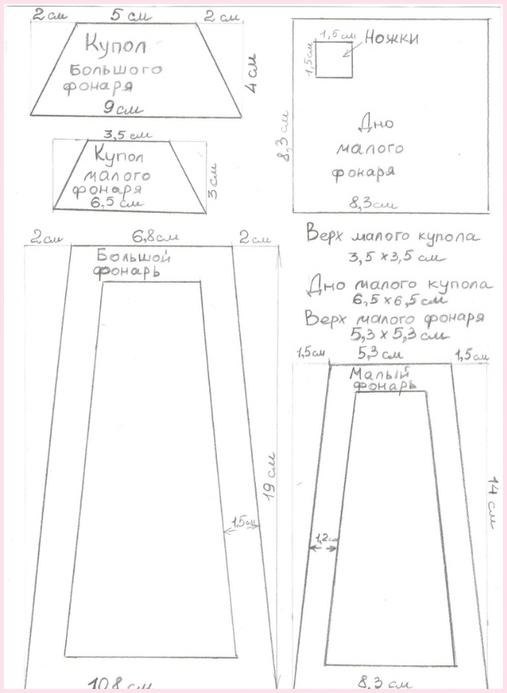 2 см 5 см 2 см
Купол
Большого
фонаря
9 см
4 см
3,5 см
Купол
малого
фонаря
6,5 см
3 см
1,5 см
Ножки
1,5 см
Дно
малого
фонаря
8,3 см
8,3 см
Верх малого купола
3,5 × 3,5 см
Дно малого купола
6,5 × 6,5 см
Верх малого фонаря
5,3 × 5,3 см
2 см 6,8 см 2 см
Большой
фонарь
19 см
1,5 см
10,8 см
1,5 см 5,3 см 1,5 см
Малый
фонарь
14 см
1,2 см
8,3 см